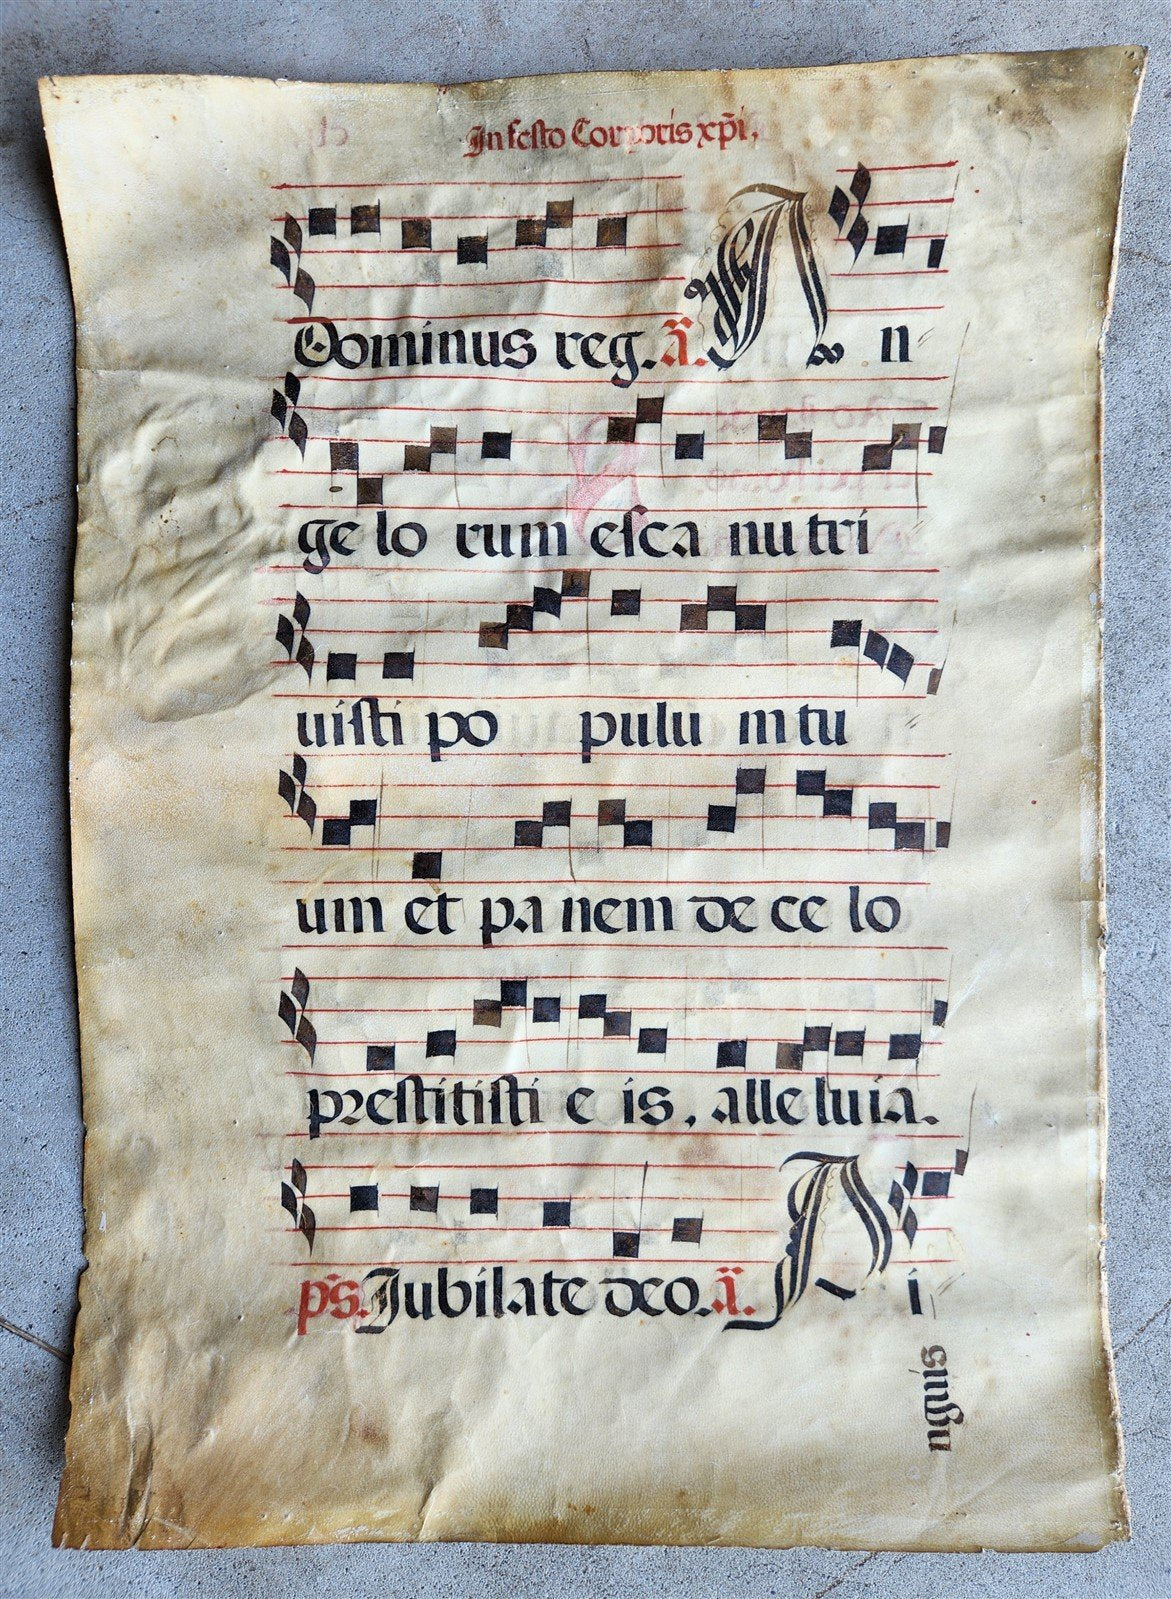 In festo Corporis xp̄i,
Dominus reg. ā. A n
ge lo rum esca nu tri
uisti po pulu m tu
um et pa nem de ce lo
prestitisti e is, alle luia.
ps. Iubilate deo. ā. P i
nguis